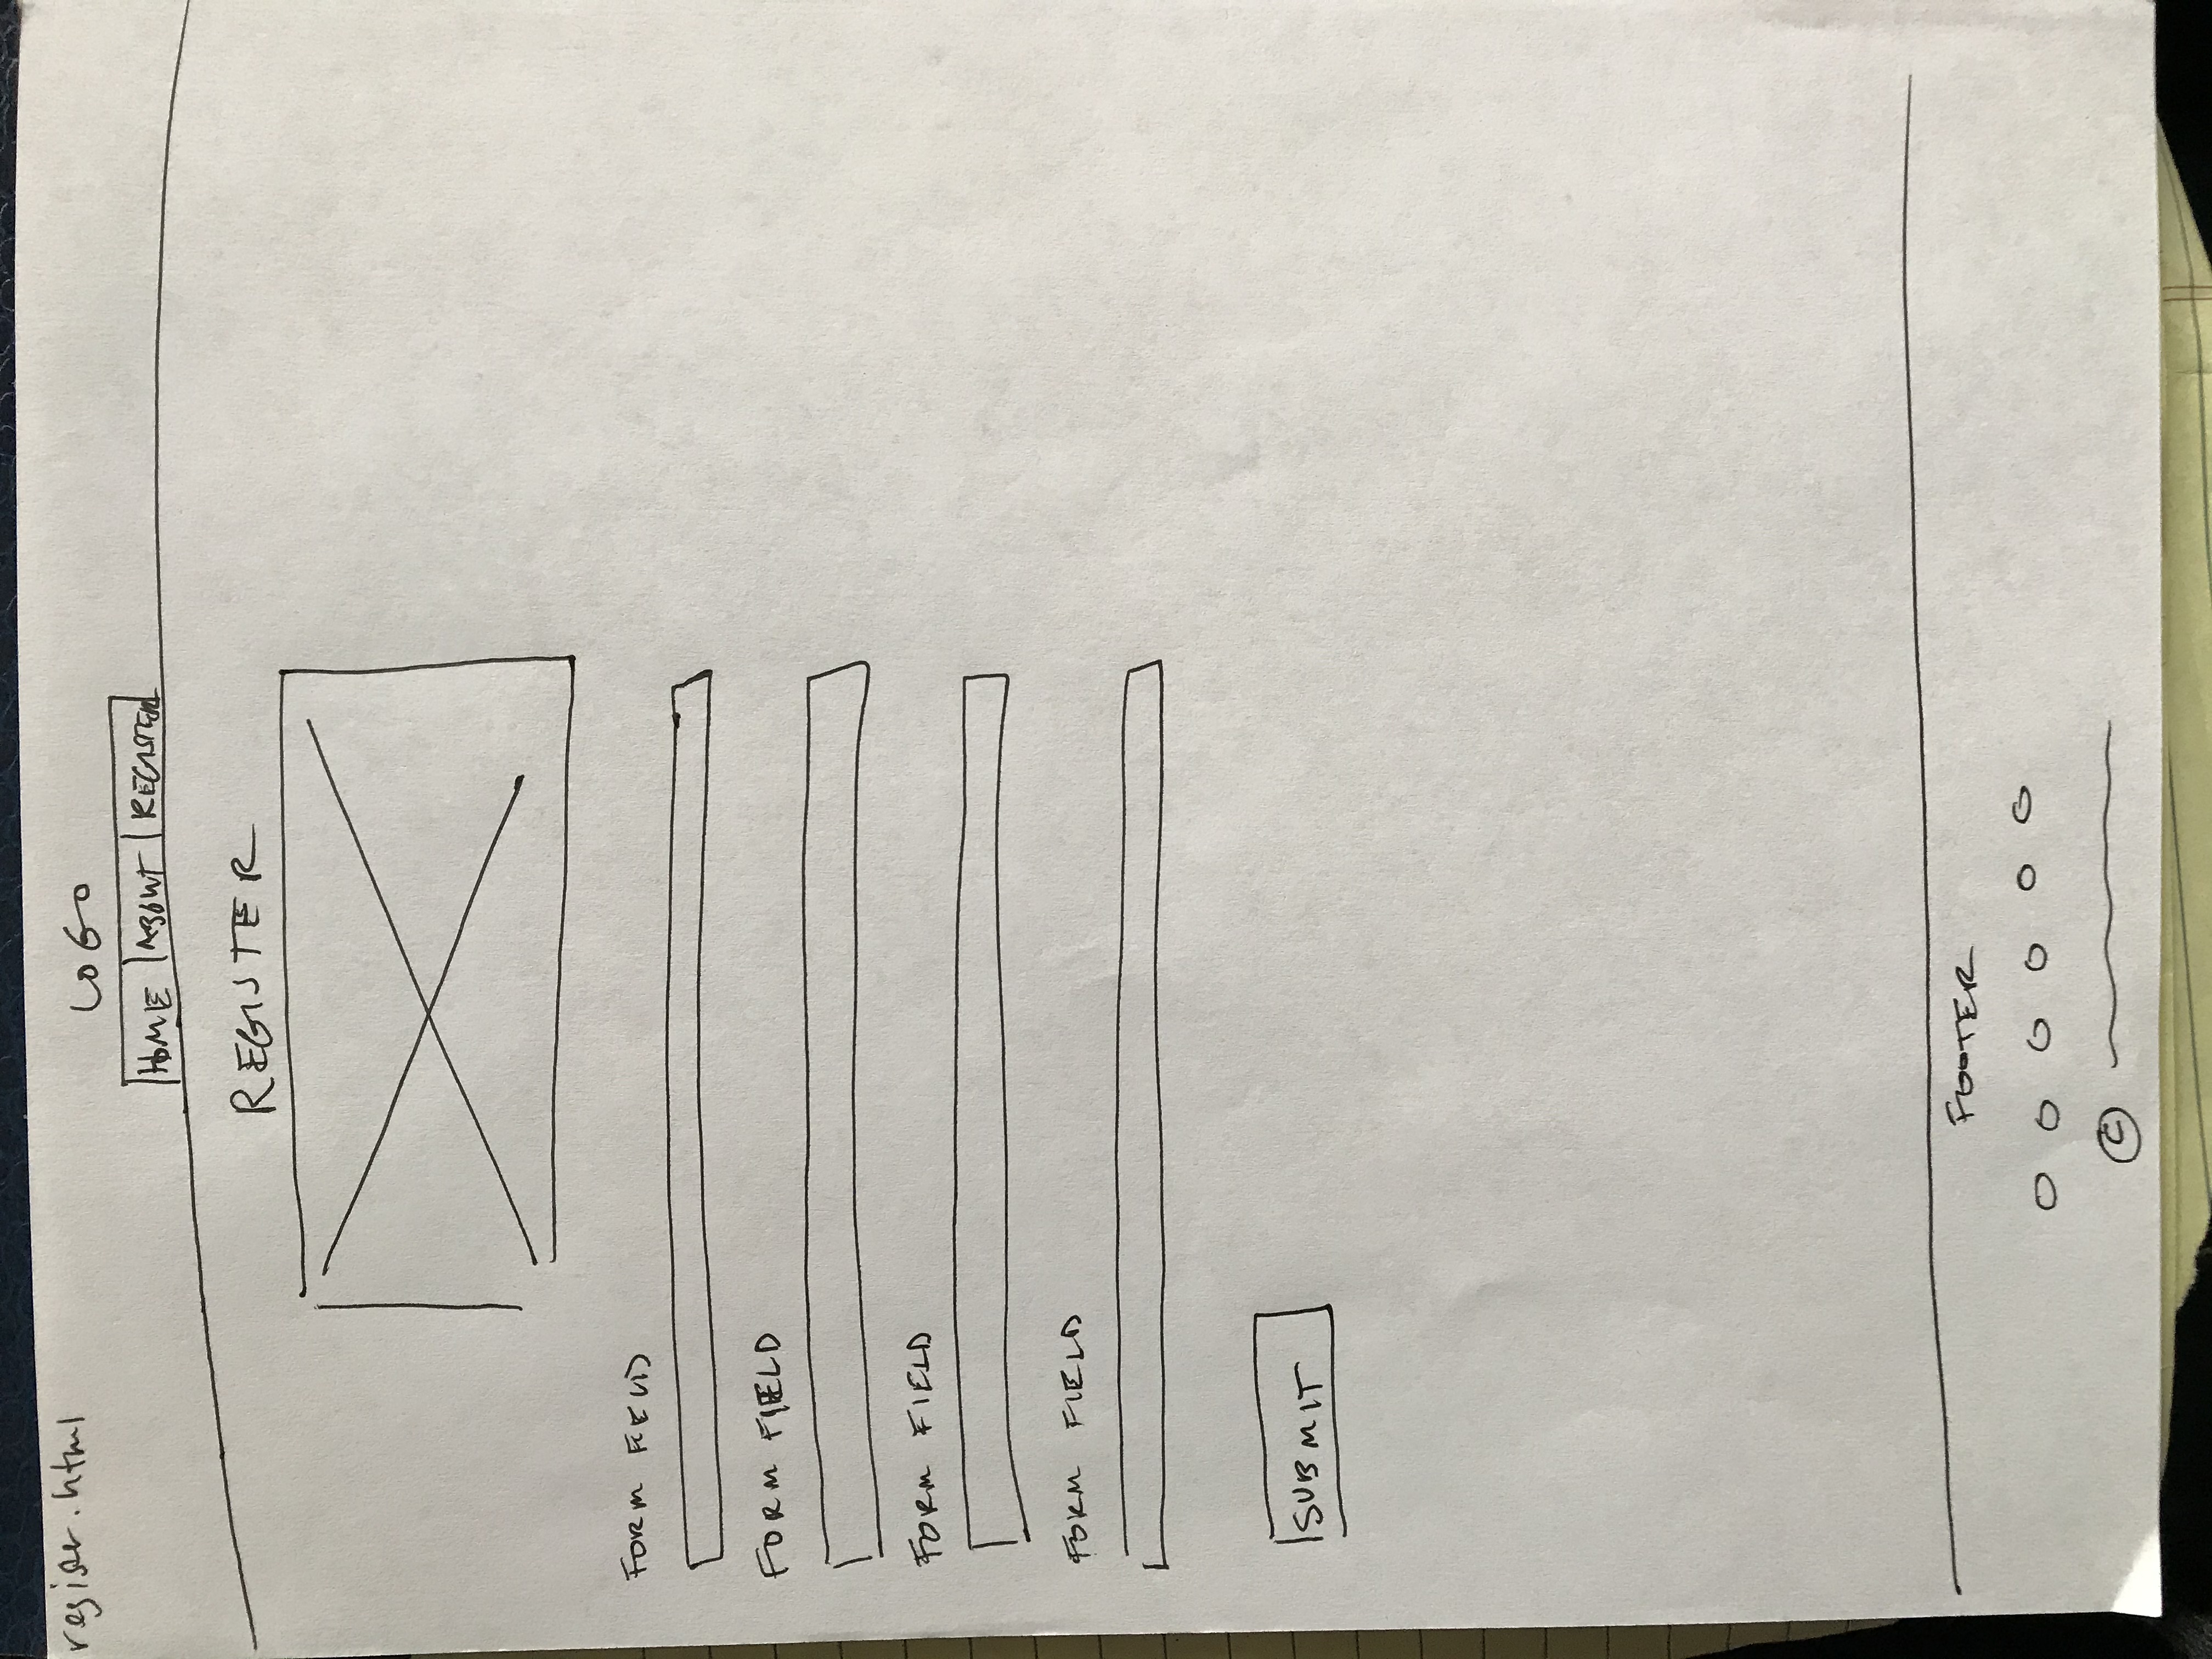 register.html
LOGO
HOME ABOUT REGISTER
REGISTER
FORM FIELD
FORM FIELD
FORM FIELD
FORM FIELD
SUBMIT
FOOTER
©